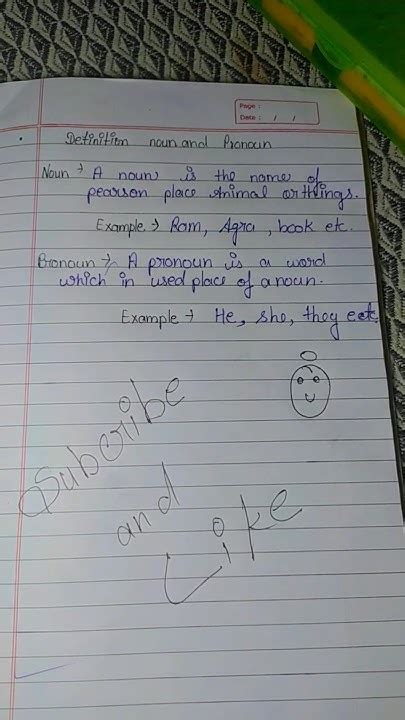 Page :
Date : / /
Definition noun and Pronoun
Noun → A noun is the name of
pearson place Animal or things.
Example → Ram, Agra, book etc.
Pronoun → A pronoun is a word
which in used place of a noun.
Example → He, she, they eetc.
Subcribe
and
Like